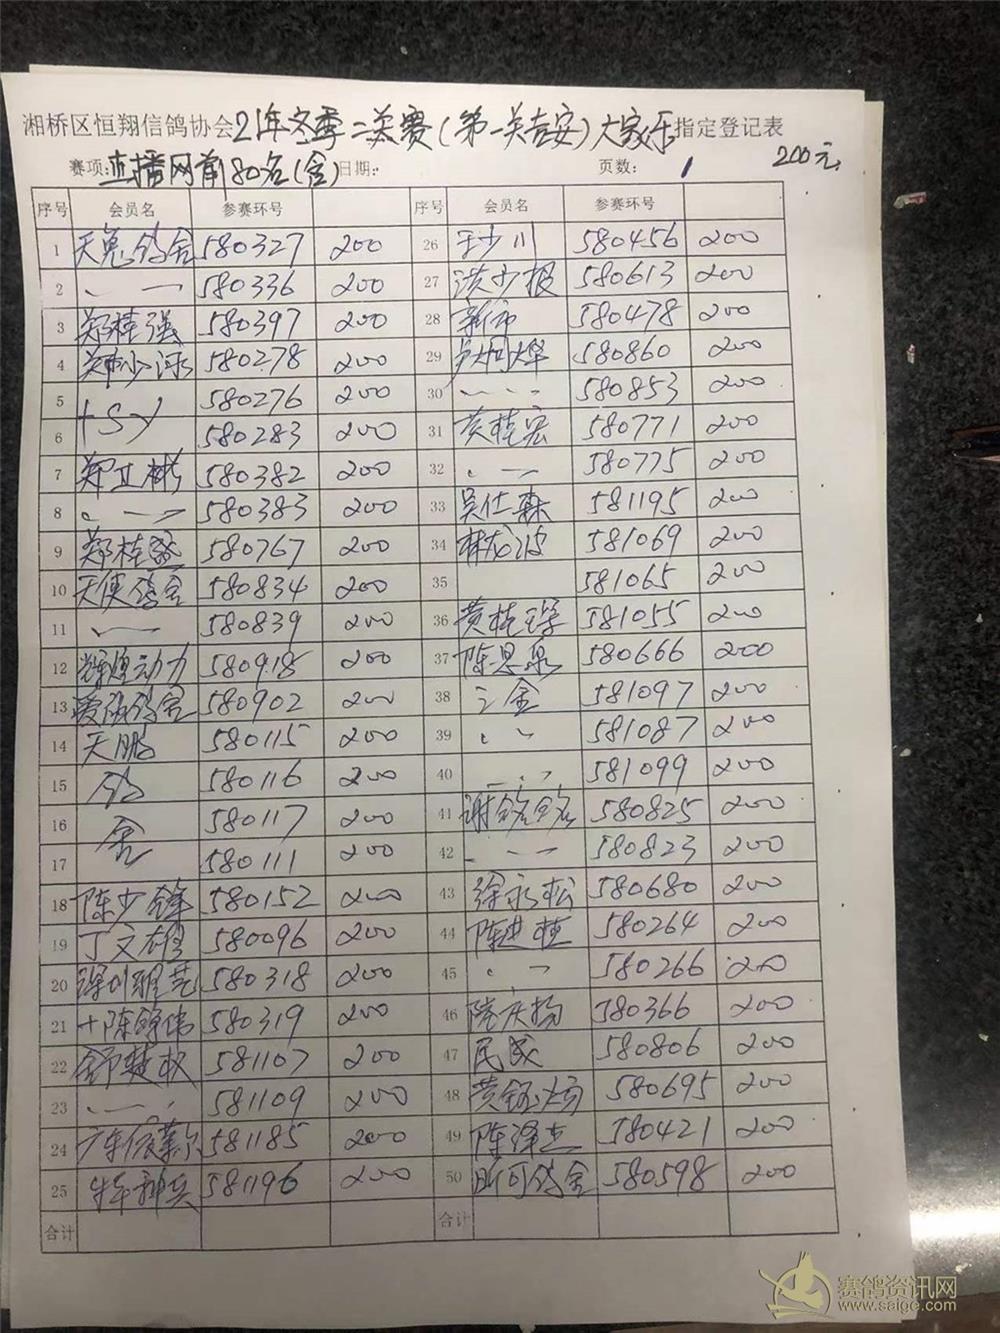 湘桥区恒翔信鸽协会21年冬季二关赛(第一关吉安)大家乐指定登记表
赛项:直播网前80名(含) 日期: 页数: 1 200元
序号 会员名 参赛环号 序号 会员名 参赛环号
1 天鬼鸽舍 580327 200 26 于少川 580456 200
2 580336 200 27 洪少报 580613 200
3 郑桂强 580397 200 28 新市 580478 200
4 580278 200 29 580860 200
5 580276 200 30 580853 200
6 +SY 580283 200 31 黄桂宏 580771 200
7 郑卫彬 580382 200 32 580775 200
8 580383 200 33 吴仕森 581195 200
9 郑桂盛 580767 200 34 林龙波 581069 200
10 天使鸽舍 580834 200 35 581065 200
11 580839 200 36 黄桂 581055 200
12 辉煌动力 580918 200 37 陈思泉 580666 200
13 鸽舍 580902 200 38 三金 581097 200
14 天鹏 580115 200 39 581087 200
15 鸽 580116 200 40 581099 200
16 舍 580117 200 41 谢铭铭 580825 200
17 580111 200 42 580823 200
18 陈少锋 580152 200 43 徐永松 580680 200
19 丁文雄 580096 200 44 陈进桂 580264 200
20 深圳雅艺 580318 200 45 580266 200
21 +陈锦伟 580319 200 46 陈庆扬 580366 200
22 舒楚权 581107 200 47 民成 580806 200
23 581109 200 48 黄钰 580695 200
24 581185 200 49 陈泽杰 580421 200
25 神兵 581196 200 50 昕可鸽舍 580598 200
合计 合计
赛鸽资讯网
www.saige.com